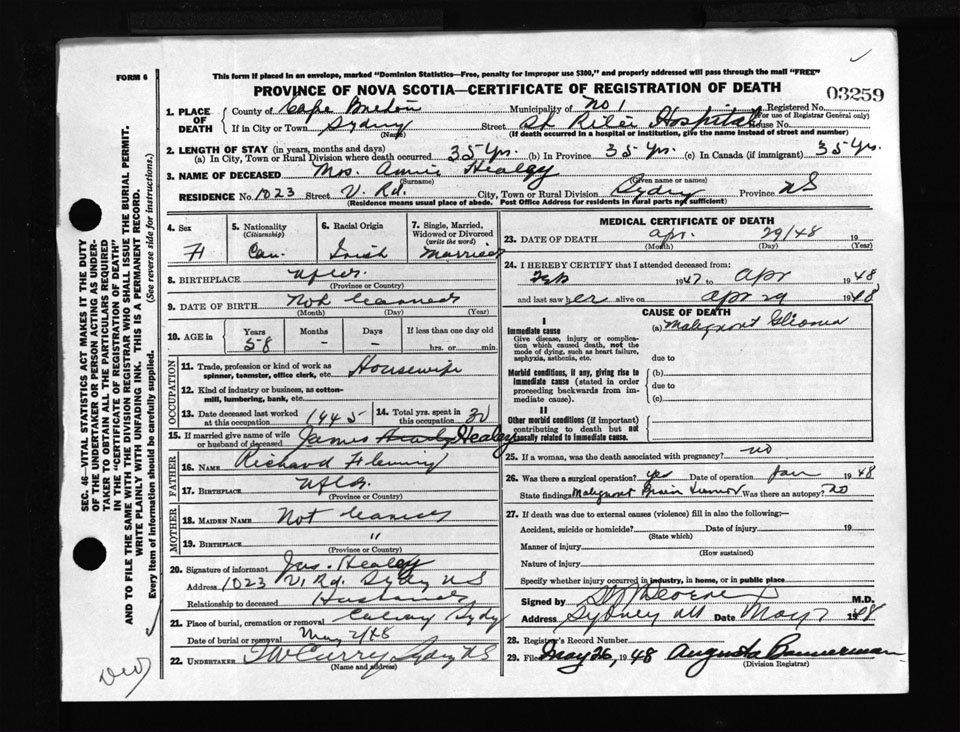 FORM 6
This form if placed in an envelope, marked "Dominion Statistics—Free, penalty for improper use $300," and properly addressed will pass through the mail "FREE"
PROVINCE OF NOVA SCOTIA—CERTIFICATE OF REGISTRATION OF DEATH
03259
1. PLACE OF DEATH County of Cape Breton Municipality of No 1 Registered No.
(For use of Registrar General only)
If in City or Town Sydney Street St Rita's Hospital House No.
(Name) (If death occurred in a hospital or institution, give the name instead of street and number)
2. LENGTH OF STAY (in years, months and days)
(a) In City, Town or Rural Division where death occurred 35 Yrs. (b) In Province 35 Yrs. (c) In Canada (if immigrant) 35 Yrs.
3. NAME OF DECEASED Mrs. Annie Healey
(Surname) (Given name or names)
RESIDENCE No. 1023 Street V. Rd. City, Town or Rural Division Sydney Province NS
(Residence means usual place of abode. Post Office Address for residents in rural parts not sufficient)
4. Sex F
5. Nationality (Citizenship) Can.
6. Racial Origin Irish
7. Single, Married, Widowed or Divorced (write the word) Married
8. BIRTHPLACE Nfld.
(Province or Country)
9. DATE OF BIRTH Not learned
(Month) (Day) (Year)
10. AGE in Years 58 Months - Days - If less than one day old hrs. or min.
OCCUPATION
11. Trade, profession or kind of work as spinner, teamster, office clerk, etc. Housewife
12. Kind of industry or business, as cotton-mill, lumbering, bank, etc.
13. Date deceased last worked at this occupation 1945
14. Total yrs. spent in this occupation 30
15. If married give name of wife or husband of deceased James Healey
FATHER
16. NAME Richard Fleming
17. BIRTHPLACE Nfld.
MOTHER
18. MAIDEN NAME Not learned
19. BIRTHPLACE "
(Province or Country)
20. Signature of informant Jas. Healey
Address 1023 V. Rd. Sydney NS
Relationship to deceased Husband
21. Place of burial, cremation or removal Calvary Sydney
Date of burial or removal May 2/48
22. UNDERTAKER T W Curry Sydney NS
(Name and address)
MEDICAL CERTIFICATE OF DEATH
23. DATE OF DEATH Apr. 29/48 19
(Month) (Day) (Year)
24. I HEREBY CERTIFY that I attended deceased from:
Feb 1947 to Apr 1948
and last saw her alive on Apr 29 1948
CAUSE OF DEATH
I
Immediate cause
Give disease, injury or complication which caused death, not the mode of dying, such as heart failure, asphyxia, asthenia, etc.
(a) Malignant Glioma
due to
Morbid conditions, if any, giving rise to immediate cause (stated in order proceeding backwards from immediate cause).
(b)
due to
(c)
II
Other morbid conditions (if important) contributing to death but not causally related to immediate cause.
25. If a woman, was the death associated with pregnancy? no
26. Was there a surgical operation? yes Date of operation Jan 1948
State findings Malignant Brain Tumor Was there an autopsy? no
27. If death was due to external causes (violence) fill in also the following:—
Accident, suicide or homicide? Date of injury 19
(State which)
Manner of injury
(How sustained)
Nature of injury
Specify whether injury occurred in industry, in home, or in public place
Signed by M.D.
Address Sydney NS Date May 7 1948
28. Registrar's Record Number
29. Filed May 26, 1948 Augusta Bannerman
(Division Registrar)
SEC. 46—VITAL STATISTICS ACT MAKES IT THE DUTY
OF THE UNDERTAKER OR PERSON ACTING AS UNDER-
TAKER TO OBTAIN ALL THE PARTICULARS REQUIRED
IN THE "CERTIFICATE OF REGISTRATION OF DEATH"
AND TO FILE THE SAME WITH THE DIVISION REGISTRAR WHO SHALL ISSUE THE BURIAL PERMIT.
WRITE PLAINLY WITH UNFADING INK. THIS IS A PERMANENT RECORD.
Every item of information should be carefully supplied. (See reverse side for instructions.)